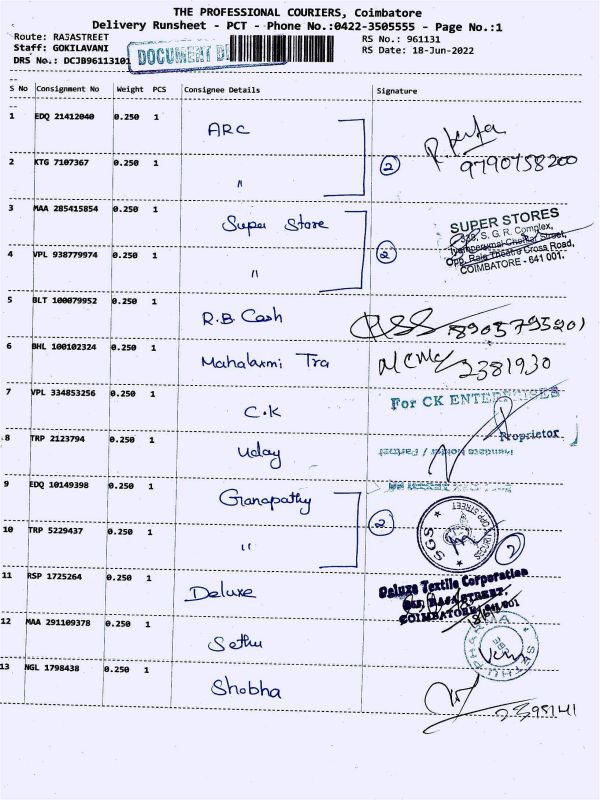 THE PROFESSIONAL COURIERS, Coimbatore
Delivery Runsheet - PCT - Phone No.:0422-3505555 - Page No.:1
Route: RAJASTREET RS No.: 961131
Staff: GOKILAVANI RS Date: 18-Jun-2022
DRS No.: DCJB96113101 DOCUMENT
S No Consignment No Weight PCS Consignee Details Signature
1 EDQ 21412040 0.250 1 ARC
9790758200
2 KTG 7107367 0.250 1 " 2
3 MAA 285415854 0.250 1 Super Store
SUPER STORES
338, S. G. R. Complex,
Street,
Opp. Raja Theatre Cross Road,
COIMBATORE - 641 001.
4 VPL 938779974 0.250 1 " 2
5 BLT 100079952 0.250 1 R.B. Cash 8903795201
6 BHL 100102324 0.250 1 Mahalaxmi Tra 2381930
7 VPL 334853256 0.250 1 C.K
For CK ENTERPRISES
Proprietor
8 TRP 2123794 0.250 1 Uday
/ Partner
9 EDQ 10149398 0.250 1 Ganapathy
SGS
OPP STREET
10 TRP 5229437 0.250 1 " 2 2
11 RSP 1725264 0.250 1 Deluxe
Deluxe Textile Corporation
RAJA STREET,
COIMBATORE-641 001
12 MAA 291109378 0.250 1 Sethu
SETHU PHARMA
13 NGL 1798438 0.250 1 Shobha